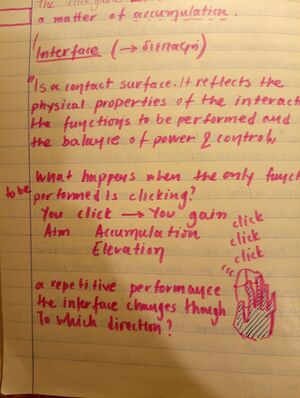 The click game
a matter of accumulation.
Interface (→ διεπαφή)
"Is a contact surface. It reflects the
physical properties of the interact
the functions to be performed and
the balance of power & control,
What happens when the only funct
to be performed is clicking?
You click → You gain
Aim Accumulation
Elevation
click
click
click
a repetitive performance
the interface changes though
To which direction?